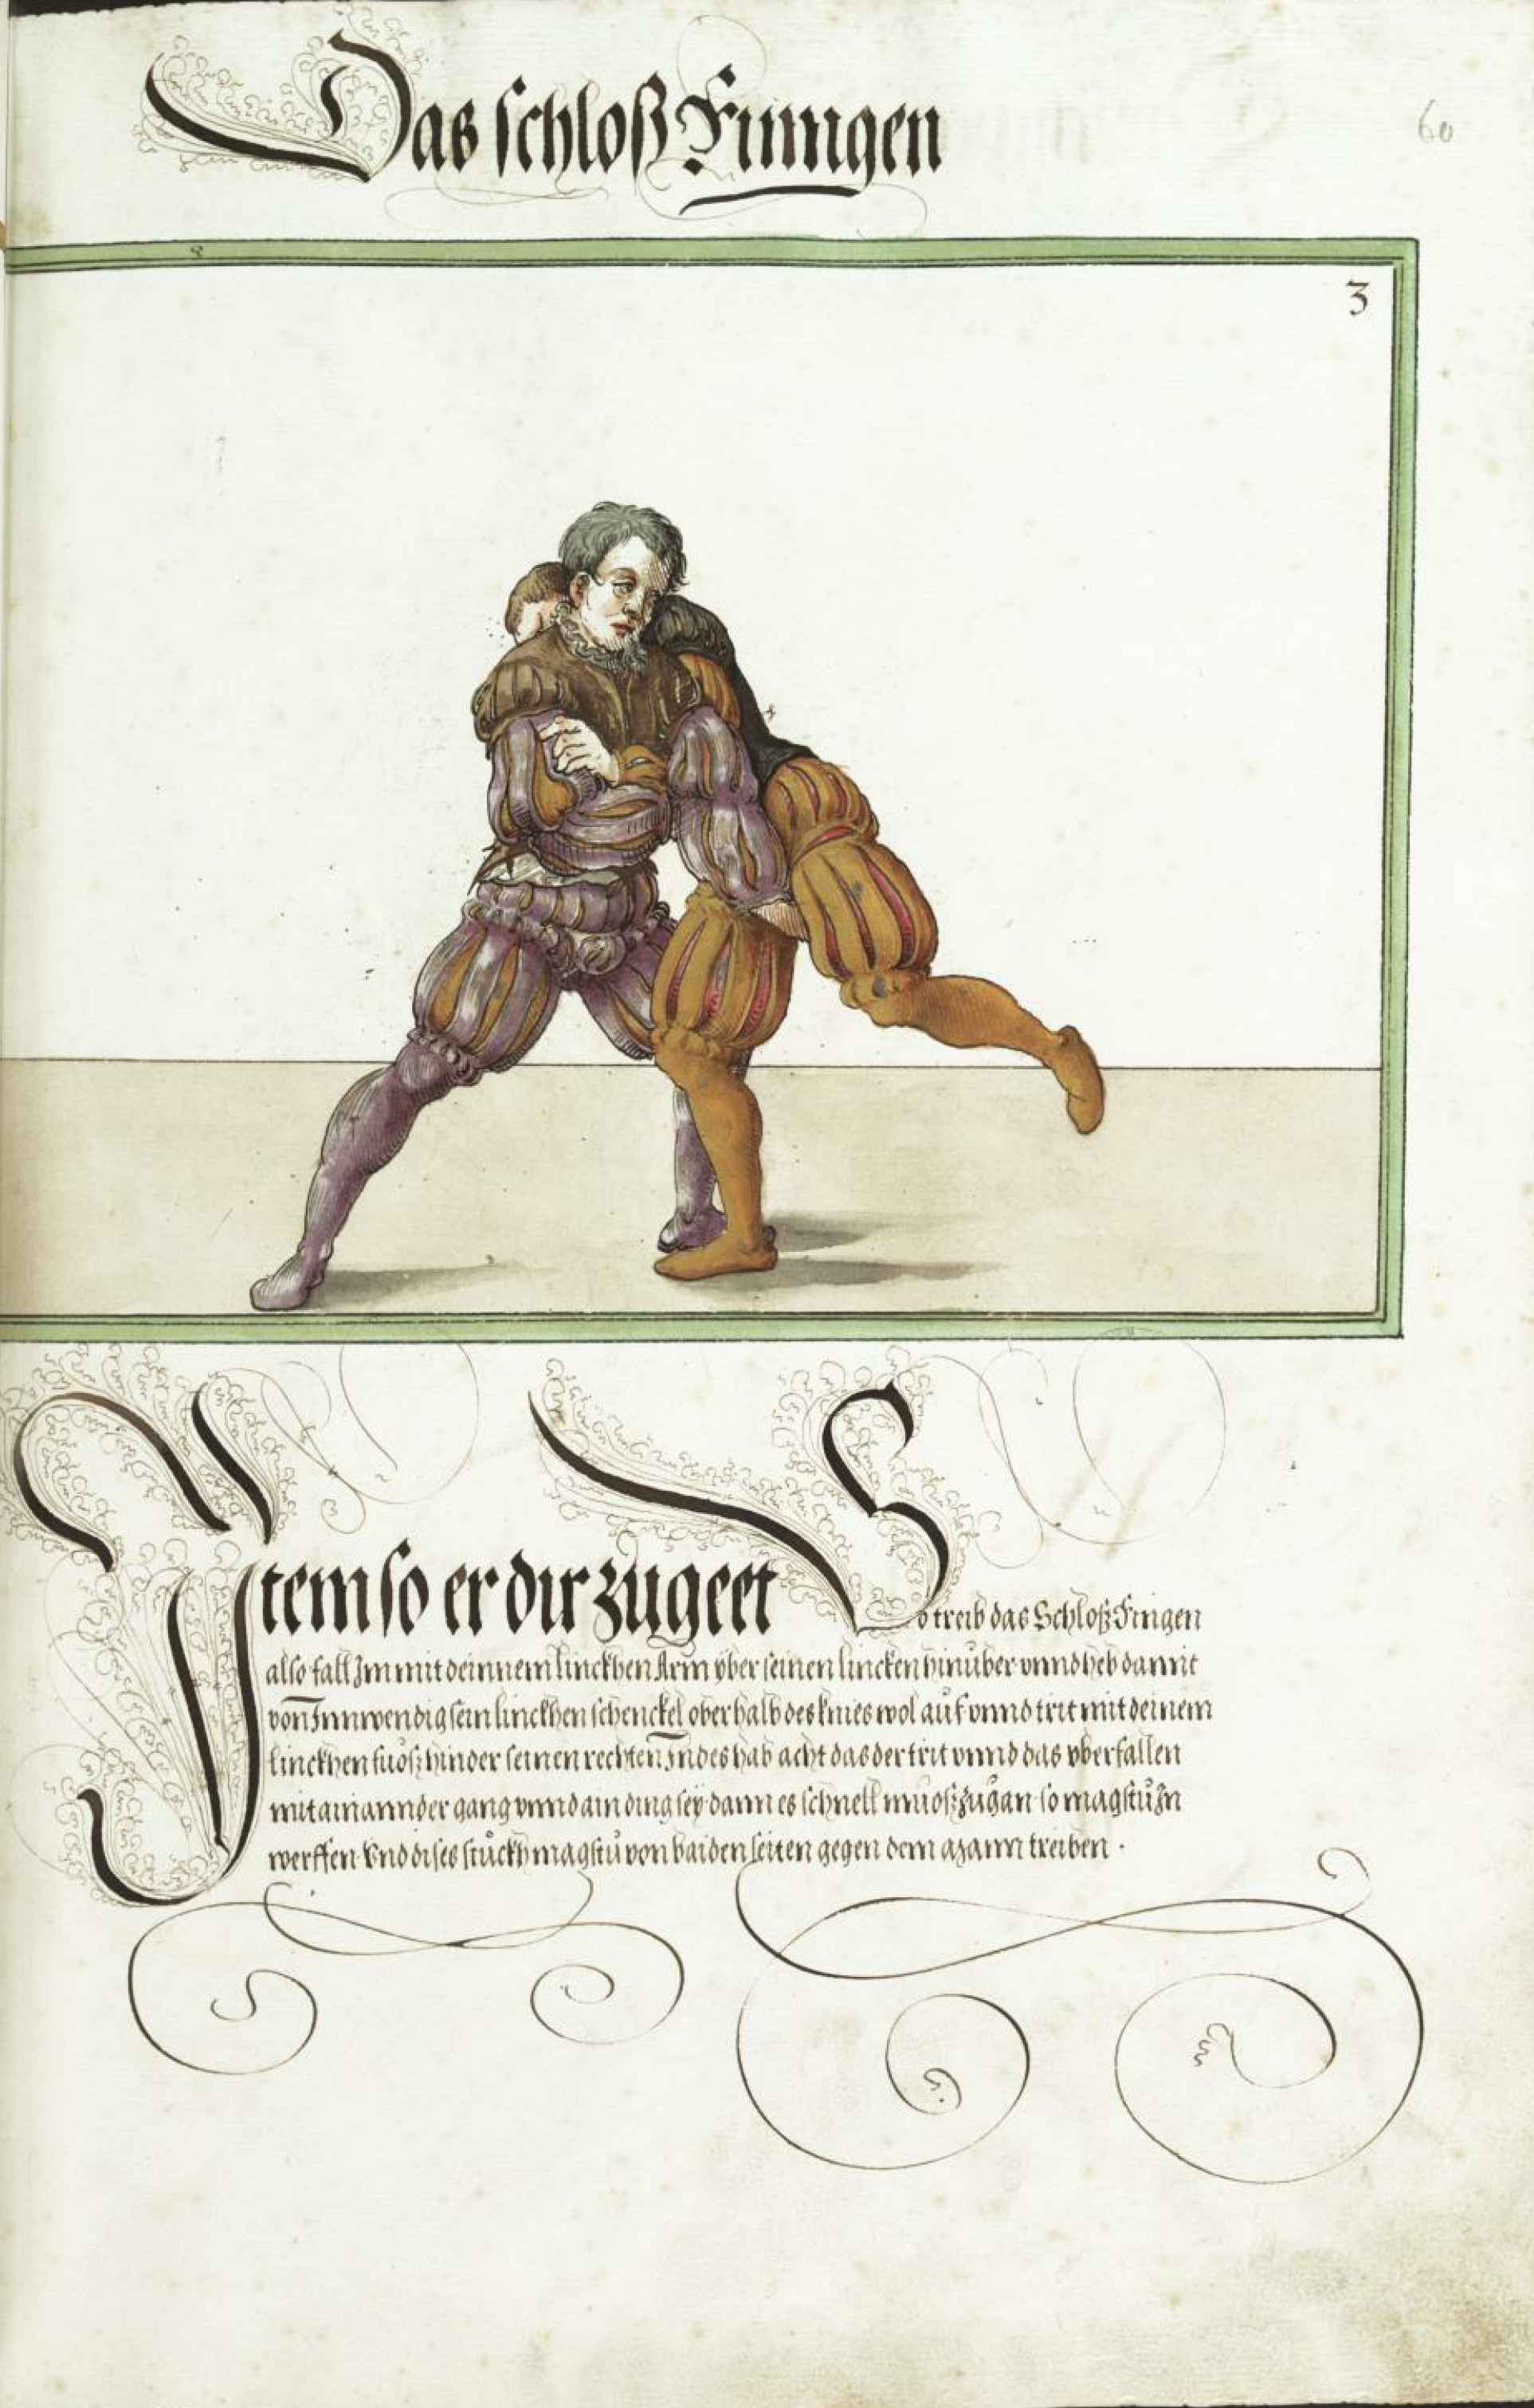 Das schloß Finngen
60
3
Item so er dir zugeet So treib das Schloß Fingen
also fall Im mit deinnem linckhen Arm yber seinen lincken hinuber vnnd heb damit
von Innwendig sein linckhen schenckel oberhalb des knies wol auf vnnd trit mit deinem
linckhen fuoß hinder seinen rechten Indes hab acht das der trit vnnd das vberfallen
mit ainannder gang vnnd ain ding sey dann es schnell muoß zugan so magstu In
werffen Vnd dises stuckh magstu von baiden seiten gegen dem Mann treiben ·